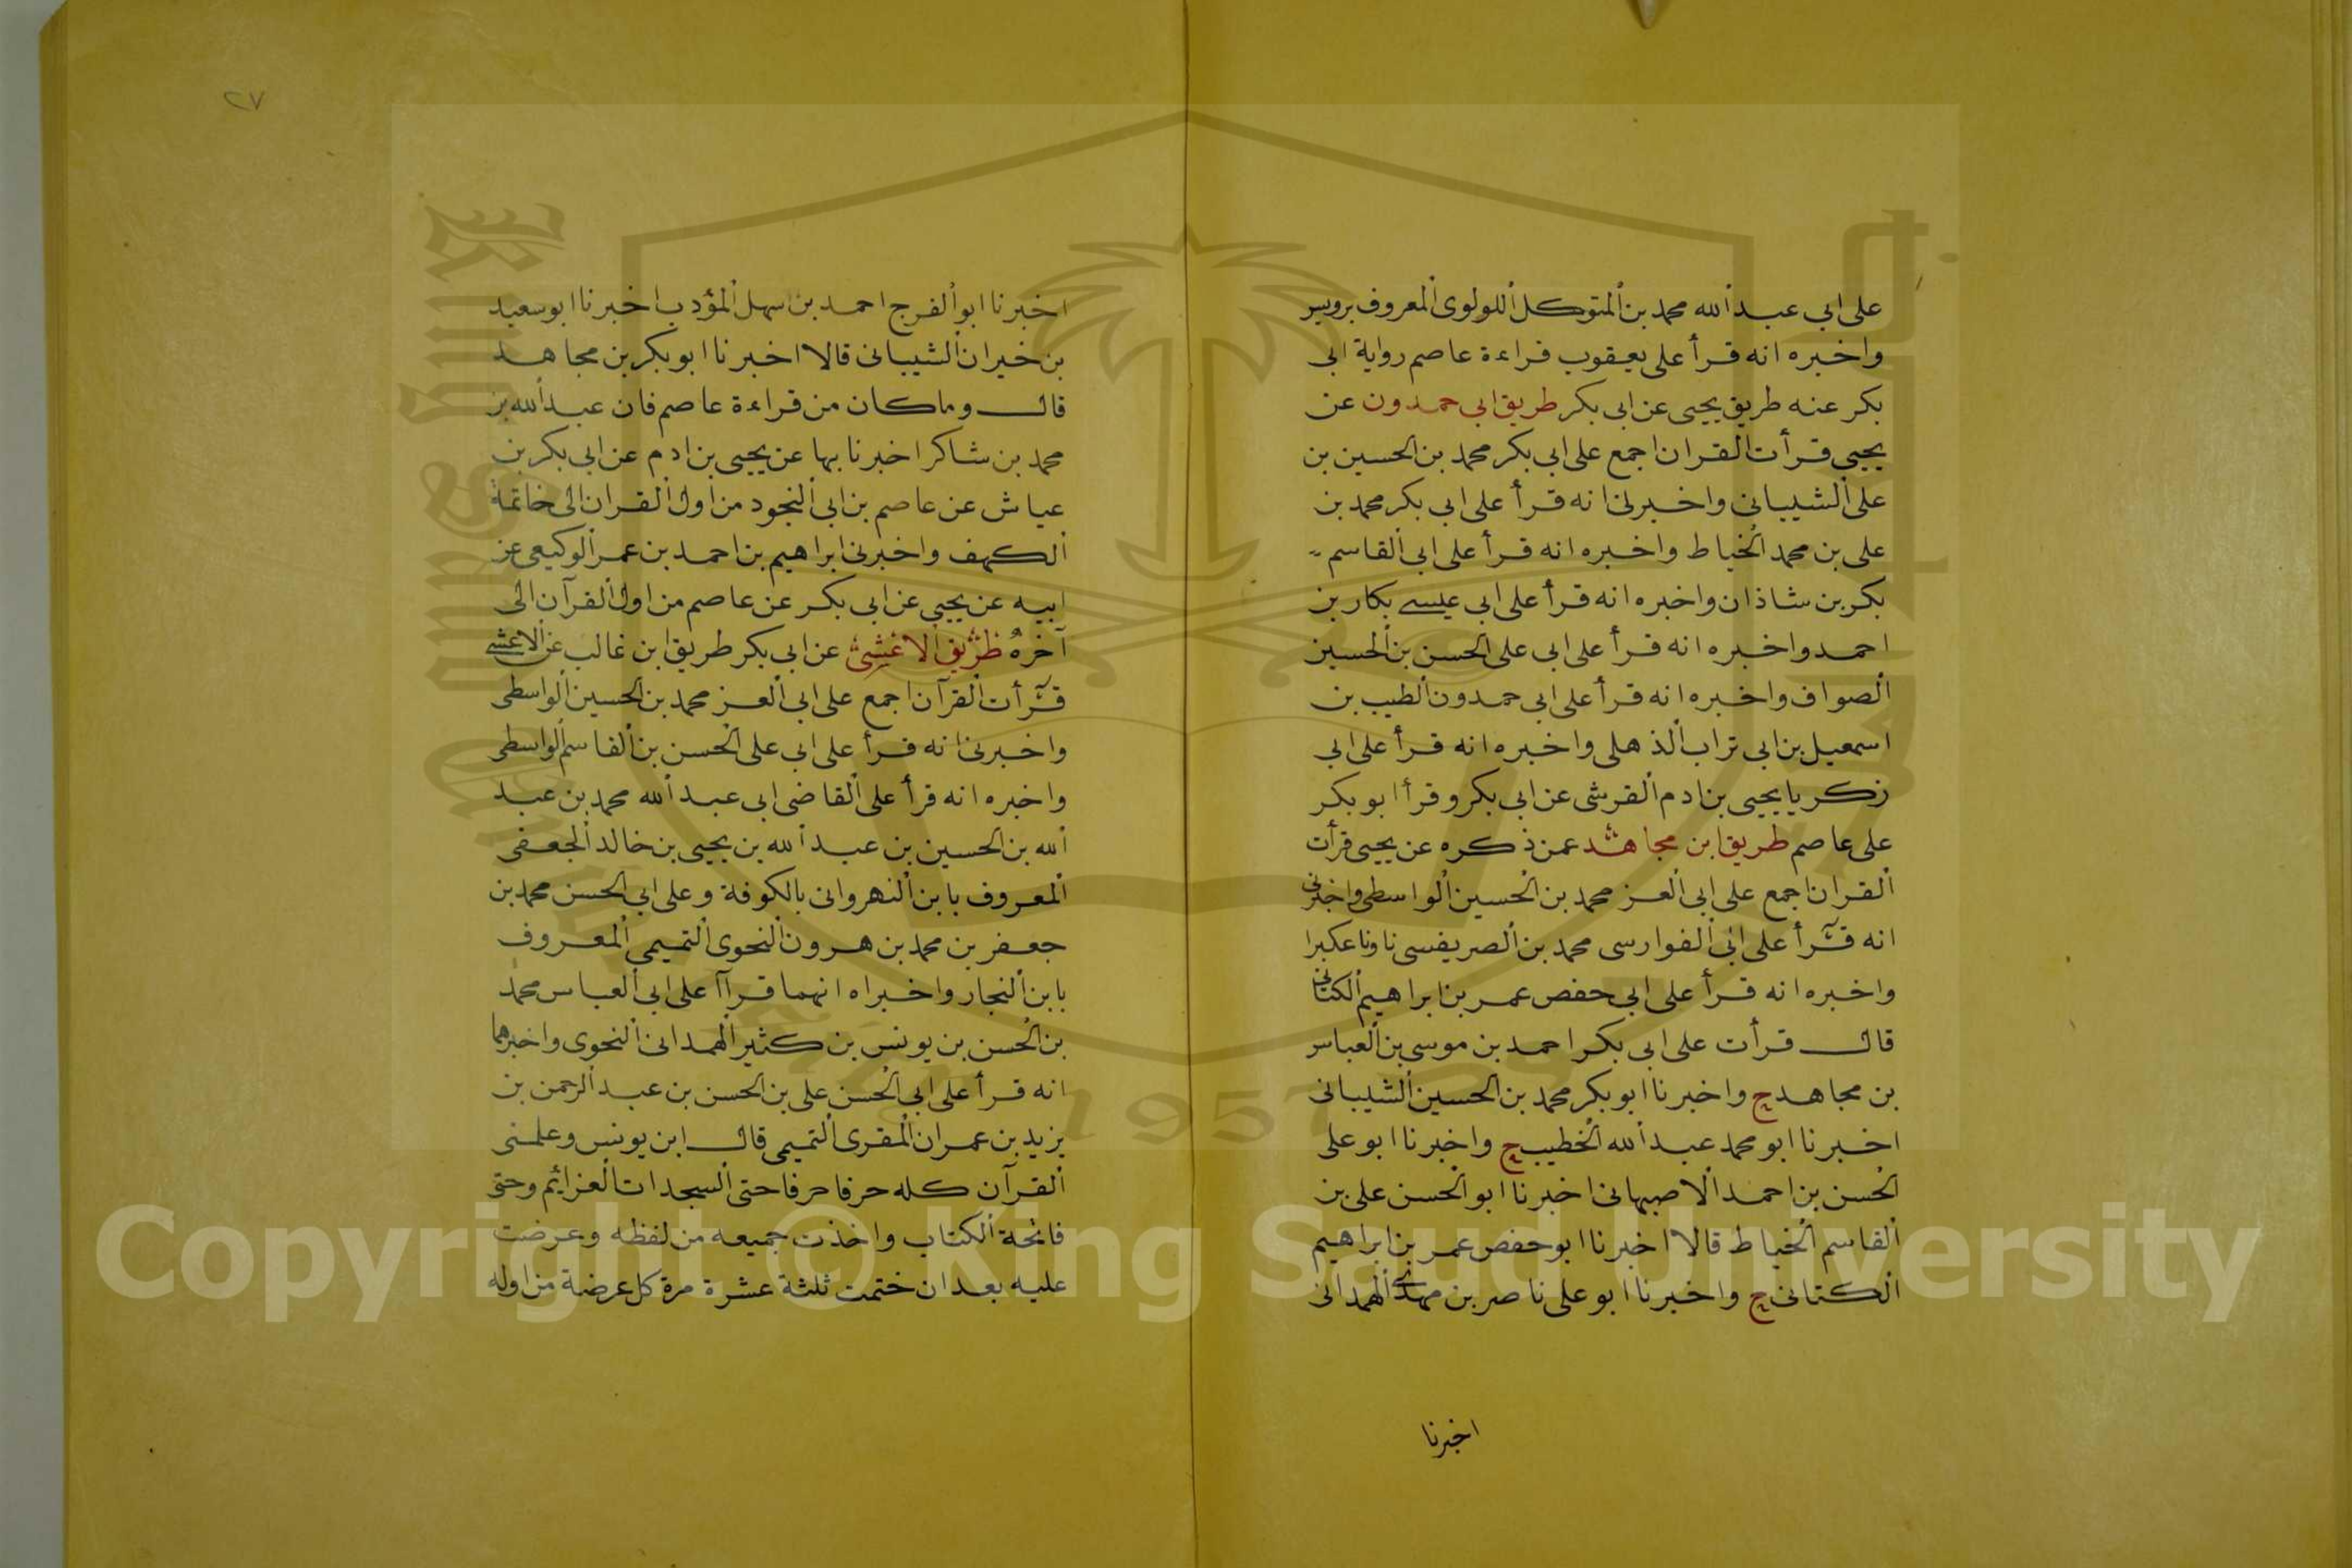 على ابي عبد الله محمد بن المتوكل اللولوى المعروف برويس
واخبره انه قرأ على يعقوب قراءة عاصم رواية ابى
بكر عنه طريق يحيى عن ابى بكر طريق ابى حمدون عن
يحيى قرأت القران اجمع على ابى بكر محمد بن الحسين بن
على الشيبانى واخبرنى انه قرأ على ابى بكر محمد بن
على بن محمد الخياط واخبره انه قرأ على ابى القاسم
بكر بن شاذان واخبره انه قرأ على ابى عيسى بكار بن
احمد واخبره انه قرأ على ابى على الحسن بن الحسين
الصواف واخبره انه قرأ على ابى حمدون الطيب بن
اسمعيل بن ابى تراب الذهلى واخبره انه قرأ على ابى
زكريا يحيى بن ادم القرشى عن ابى بكر وقرأ ابو بكر
على عاصم طريق ابن مجاهد عمن ذكره عن يحيى قرأت
القران اجمع على ابى العز محمد بن الحسين الواسطى واخبرنى
انه قرأ على ابى الفوارسى محمد بن الصريفسى ناونا عكبرا
واخبره انه قرأ على ابى حفص عمر بن ابراهيم الكتانى
قال قرأت على ابى بكر احمد بن موسى بن العباس
بن مجاهد ح واخبرنا ابو بكر محمد بن الحسين الشيبانى
اخبرنا ابو محمد عبد الله الخطيب ح واخبرنا ابو على
الحسن بن احمد الاصبهانى اخبرنا ابو الحسن على بن
القاسم الخياط قالا اخبرنا ابو حفص عمر بن ابراهيم
الكتانى ح واخبرنا ابو على ناصر بن مهدى الهمدانى
اخبرنا
٢٧
اخبرنا ابو الفرج احمد بن سهل المؤدب اخبرنا ابو سعيد
بن خيران الشيبانى قالا اخبرنا ابو بكر بن مجاهد
قال وما كان من قراءة عاصم فان عبد الله بن
محمد بن شاكر اخبرنا بها عن يحيى بن ادم عن ابى بكر بن
عياش عن عاصم بن ابى النجود من اول القران الى خاتمة
الكهف واخبرنى ابراهيم بن احمد بن عمر الوكيعى عن
ابيه عن يحيى عن ابى بكر عن عاصم من اول القرآن الى
آخره طريق الاعشى عن ابى بكر طريق ابن غالب عن الاعشى
قرأت القرآن اجمع على ابى العز محمد بن الحسين الواسطى
واخبرنى انه قرأ على ابى على الحسن بن القاسم الواسطى
واخبره انه قرأ على القاضى ابى عبد الله محمد بن عبد
الله بن الحسين بن عبد الله بن يحيى بن خالد الجعفى
المعروف بابن النهروانى بالكوفة وعلى ابى الحسن محمد بن
جعفر بن محمد بن هرون النحوى التميمى المعروف
بابن النجار واخبراه انهما قرآا على ابى العباس محمد
بن الحسن بن يونس بن كثير الهمدانى النحوى واخبرهما
انه قرأ على ابى الحسن على بن الحسن بن عبد الرحمن بن
يزيد بن عمران المقرى التميمى قال ابن يونس وعلمنى
القرآن كله حرفا حرفا حتى السجدات العزايم وحتى
فاتحة الكتاب واخذت جميعه من لفظه وعرضت
عليه بعد ان ختمت ثلثة عشرة مرة كل عرضة من اوله
Copyright © King Saud University
1957